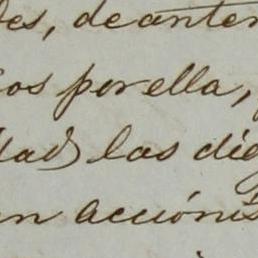 des, de anter
os por ella,
dad las dig
en acciónis